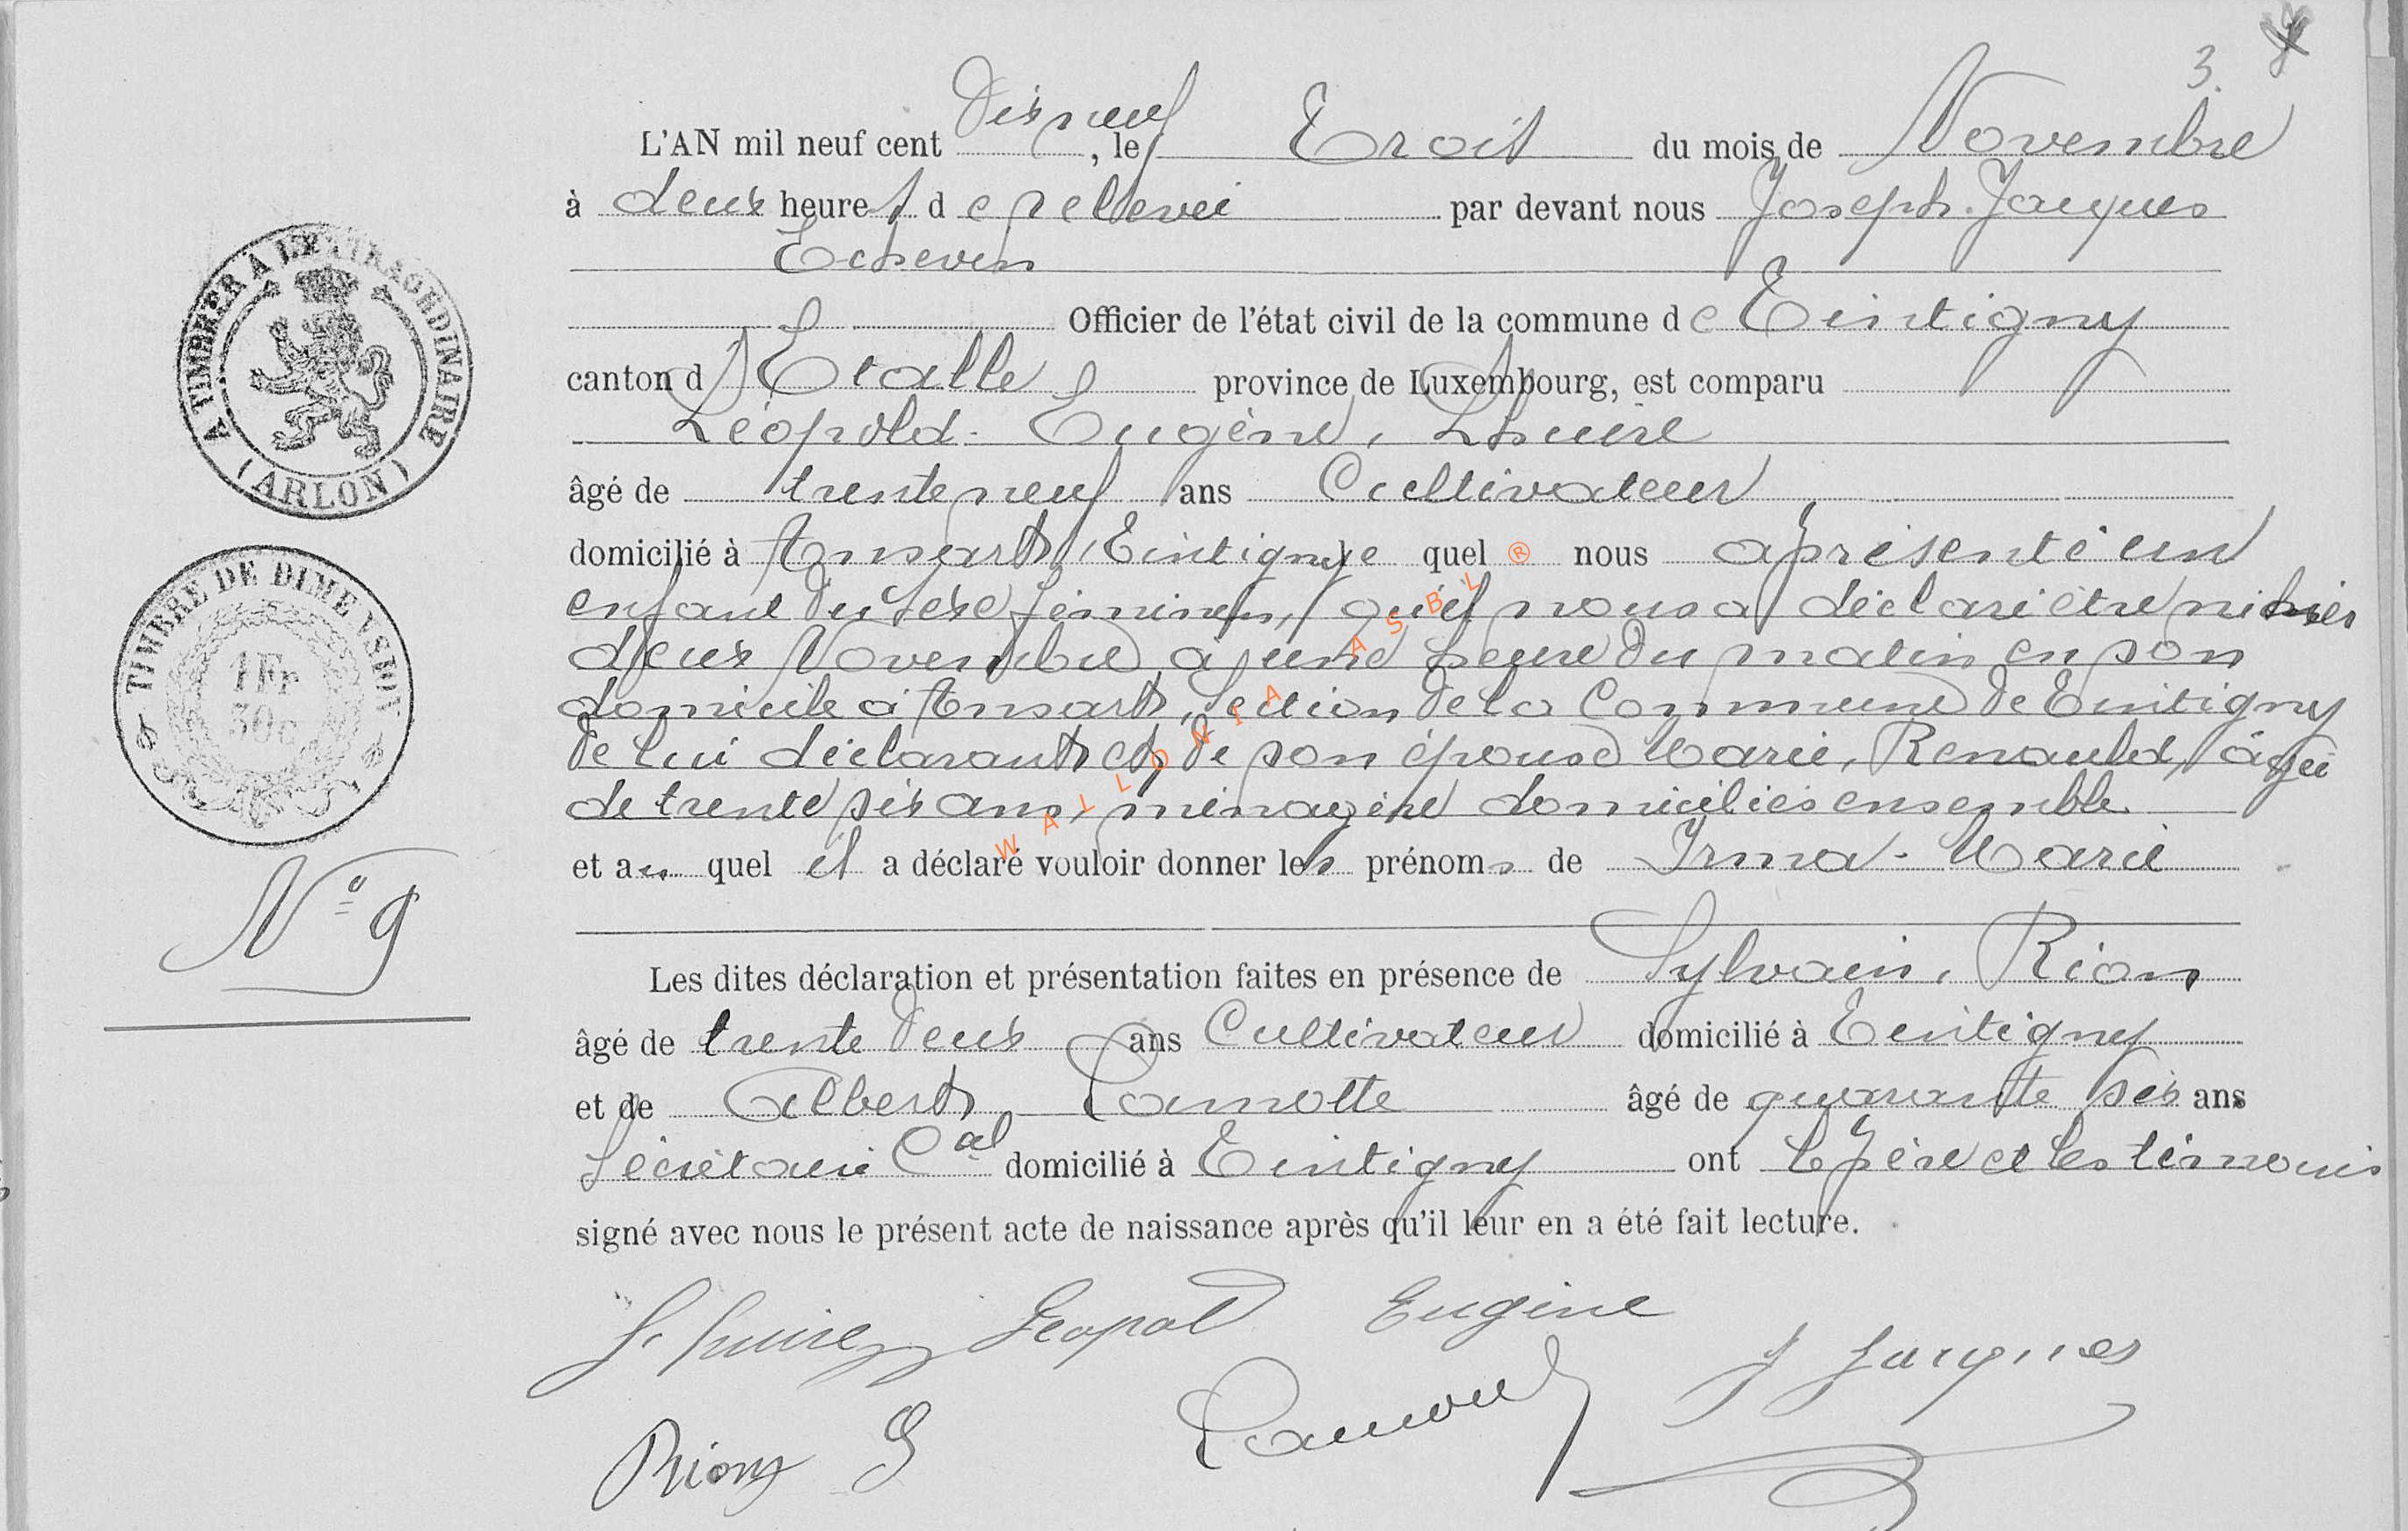 3.
L'AN mil neuf cent Dix neuf, le Trois du mois de Novembre
à deux heures de relevée par devant nous Joseph. Jacques
Echevin
Officier de l'état civil de la commune de Tintigny
canton d'Etalle province de Luxembourg, est comparu
Léopold-Eugène, Lhuire
âgé de trente neuf ans Cultivateur
domicilié à Ansart, Tintigny e quel nous a présenté un
enfant du sexe féminin, qu'il nous a déclaré être né hier
deux Novembre à une heure du matin en son
domicile à Ansart, Section de la Commune de Tintigny
de lui déclarant et de son épouse Marie, Renauld, âgée
de trente six ans, ménagère domiciliés ensemble
et au quel il a déclaré vouloir donner les prénoms de Irma-Marie
Les dites déclaration et présentation faites en présence de Sylvain, Rion
âgé de trente deux ans Cultivateur domicilié à Tintigny
et de Albert Lamotte âgé de quarante six ans
Secrétaire Cal domicilié à Tintigny ont le père et les témoins
signé avec nous le présent acte de naissance après qu'il leur en a été fait lecture.
Lhuire Léopold Eugène
J Jacques
Rion S
A TIMBRER A L'EXTRAORDINAIRE
(ARLON)
TIMBRE DE DIMENSION
1Fr
30c
N° 9
WALLONIA ASBL ®